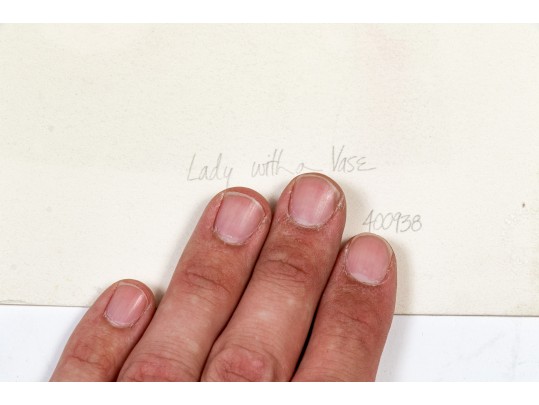 Lady with a Vase
400938